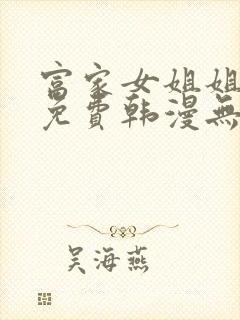 富家女姐姐
免費韩漫無
吴海燕